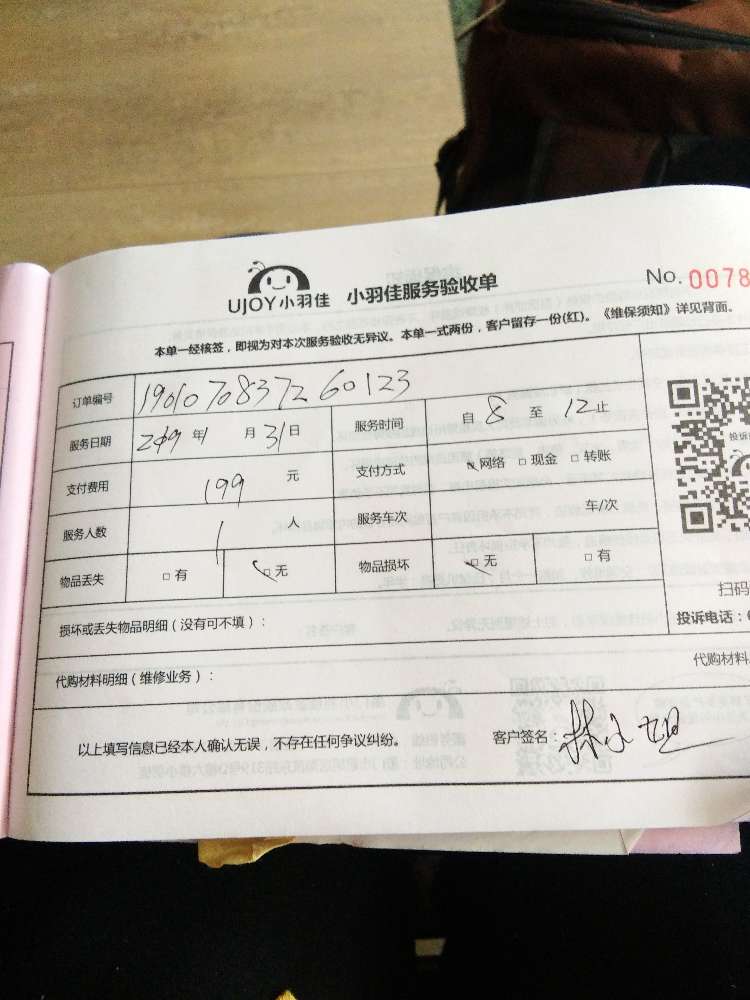 UJOY小羽佳 小羽佳服务验收单 No. 0078
本单一经核签，即视为对本次服务验收无异议。本单一式两份，客户留存一份(红)。《维保须知》详见背面。
订单编号 1901070837260123
服务日期 2019年1月31日 服务时间 自8至12止
支付费用 199元 支付方式 网络 现金 转账
服务人数 1人 服务车次 车/次
物品丢失 有 无 物品损坏 无 有
投诉
扫码
损坏或丢失物品明细（没有可不填）： 投诉电话：
代购材料明细（维修业务）： 代购材料
以上填写信息已经本人确认无误，不存在任何争议纠纷。 客户签名：林小姐